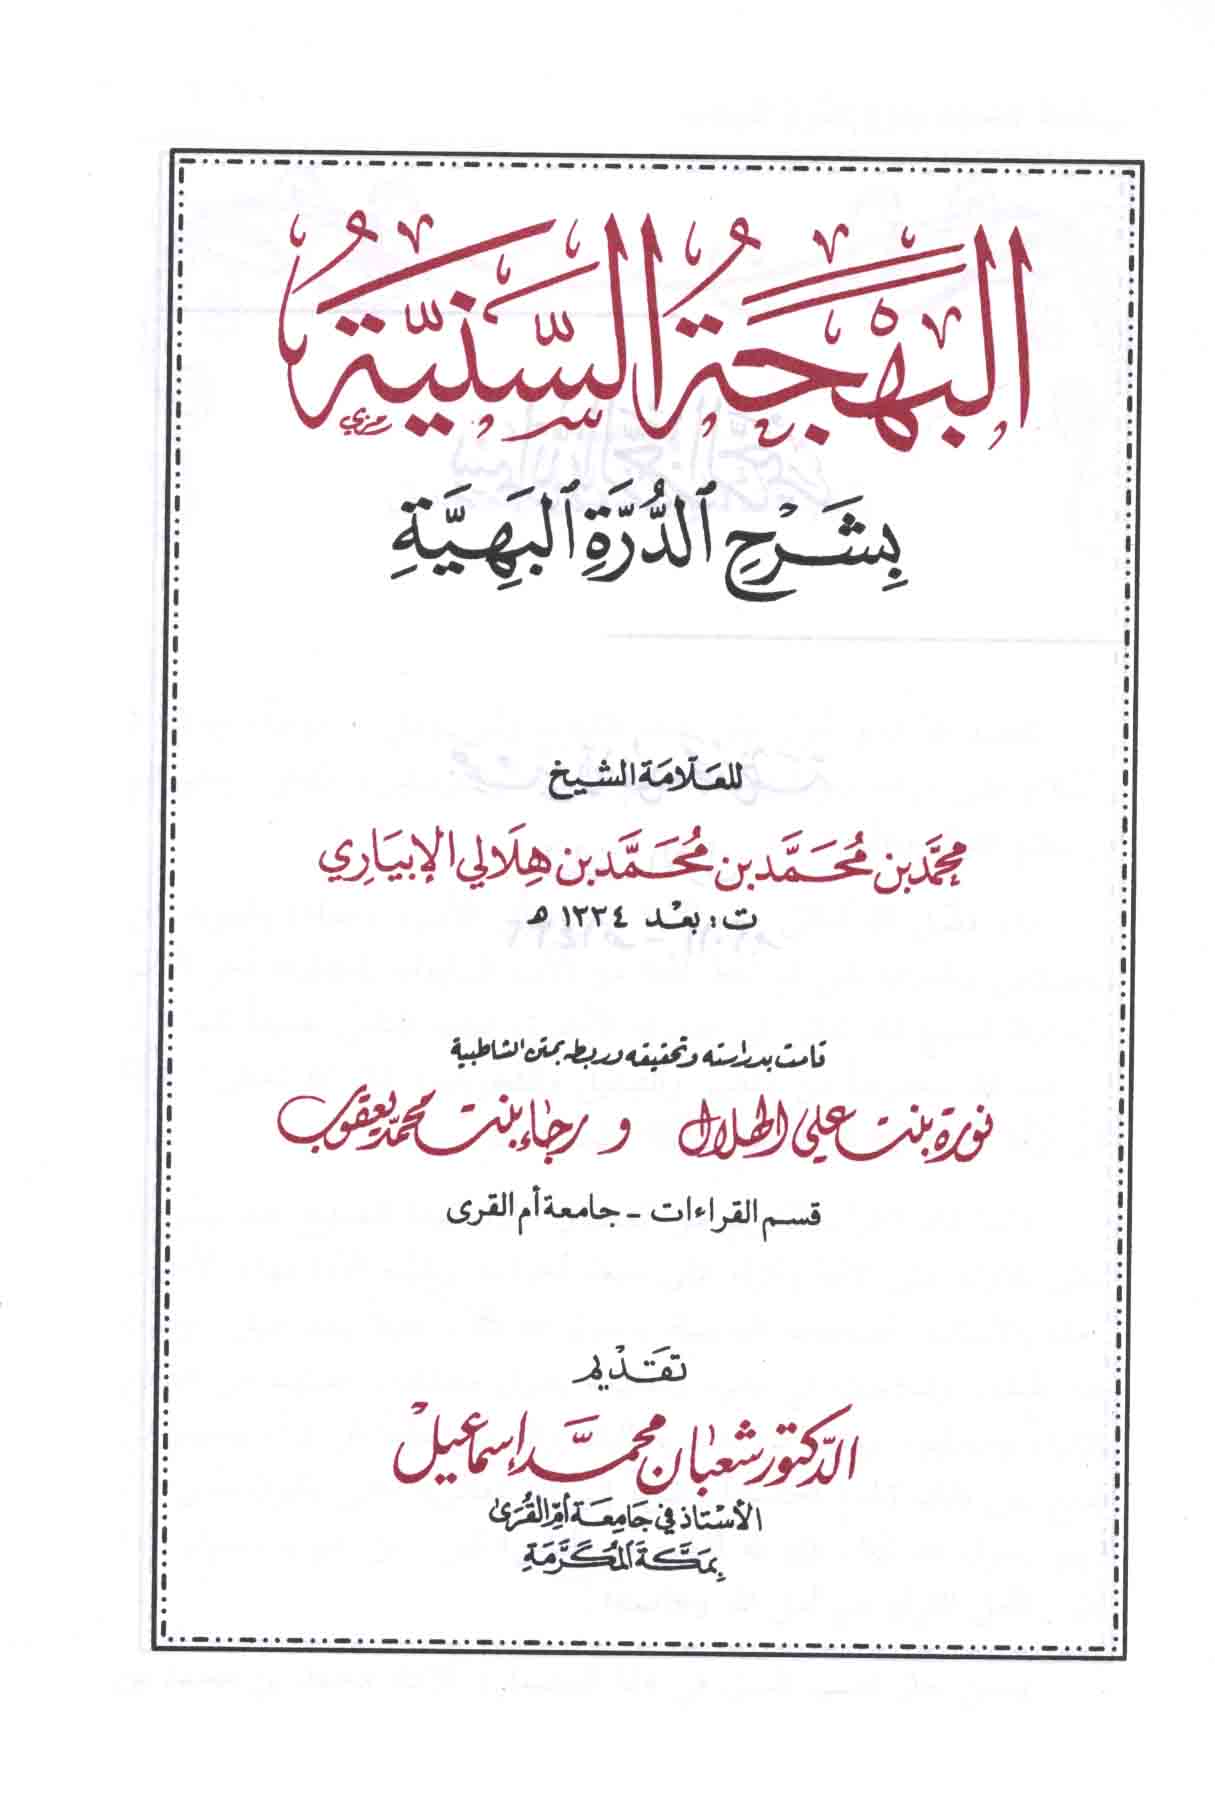 البَهْجَةُ السَّنِيَّةُ
بِشَرْحِ ٱلدُّرَّةِ ٱلبَهِيَّةِ
للعَلّامَة الشيخ
محمَّد بن مُحَمَّد بن مُحَمَّد بن هِلَالي الإبيَاري
ت : بعد ١٢٣٤ هـ
قامت بدراسته وتحقيقه وربطه بمتن الشاطبية
نورة بنت علي الهلال و رجاء بنت محمد يعقوب
قسم القراءات - جامعة أم القرى
تقديم
الدكتور شعبان محمد إسماعيل
الأستاذ في جَامِعَة أمّ القُرىٰ
بِمَكَّةَ ٱلمُكَرَّمَةِ